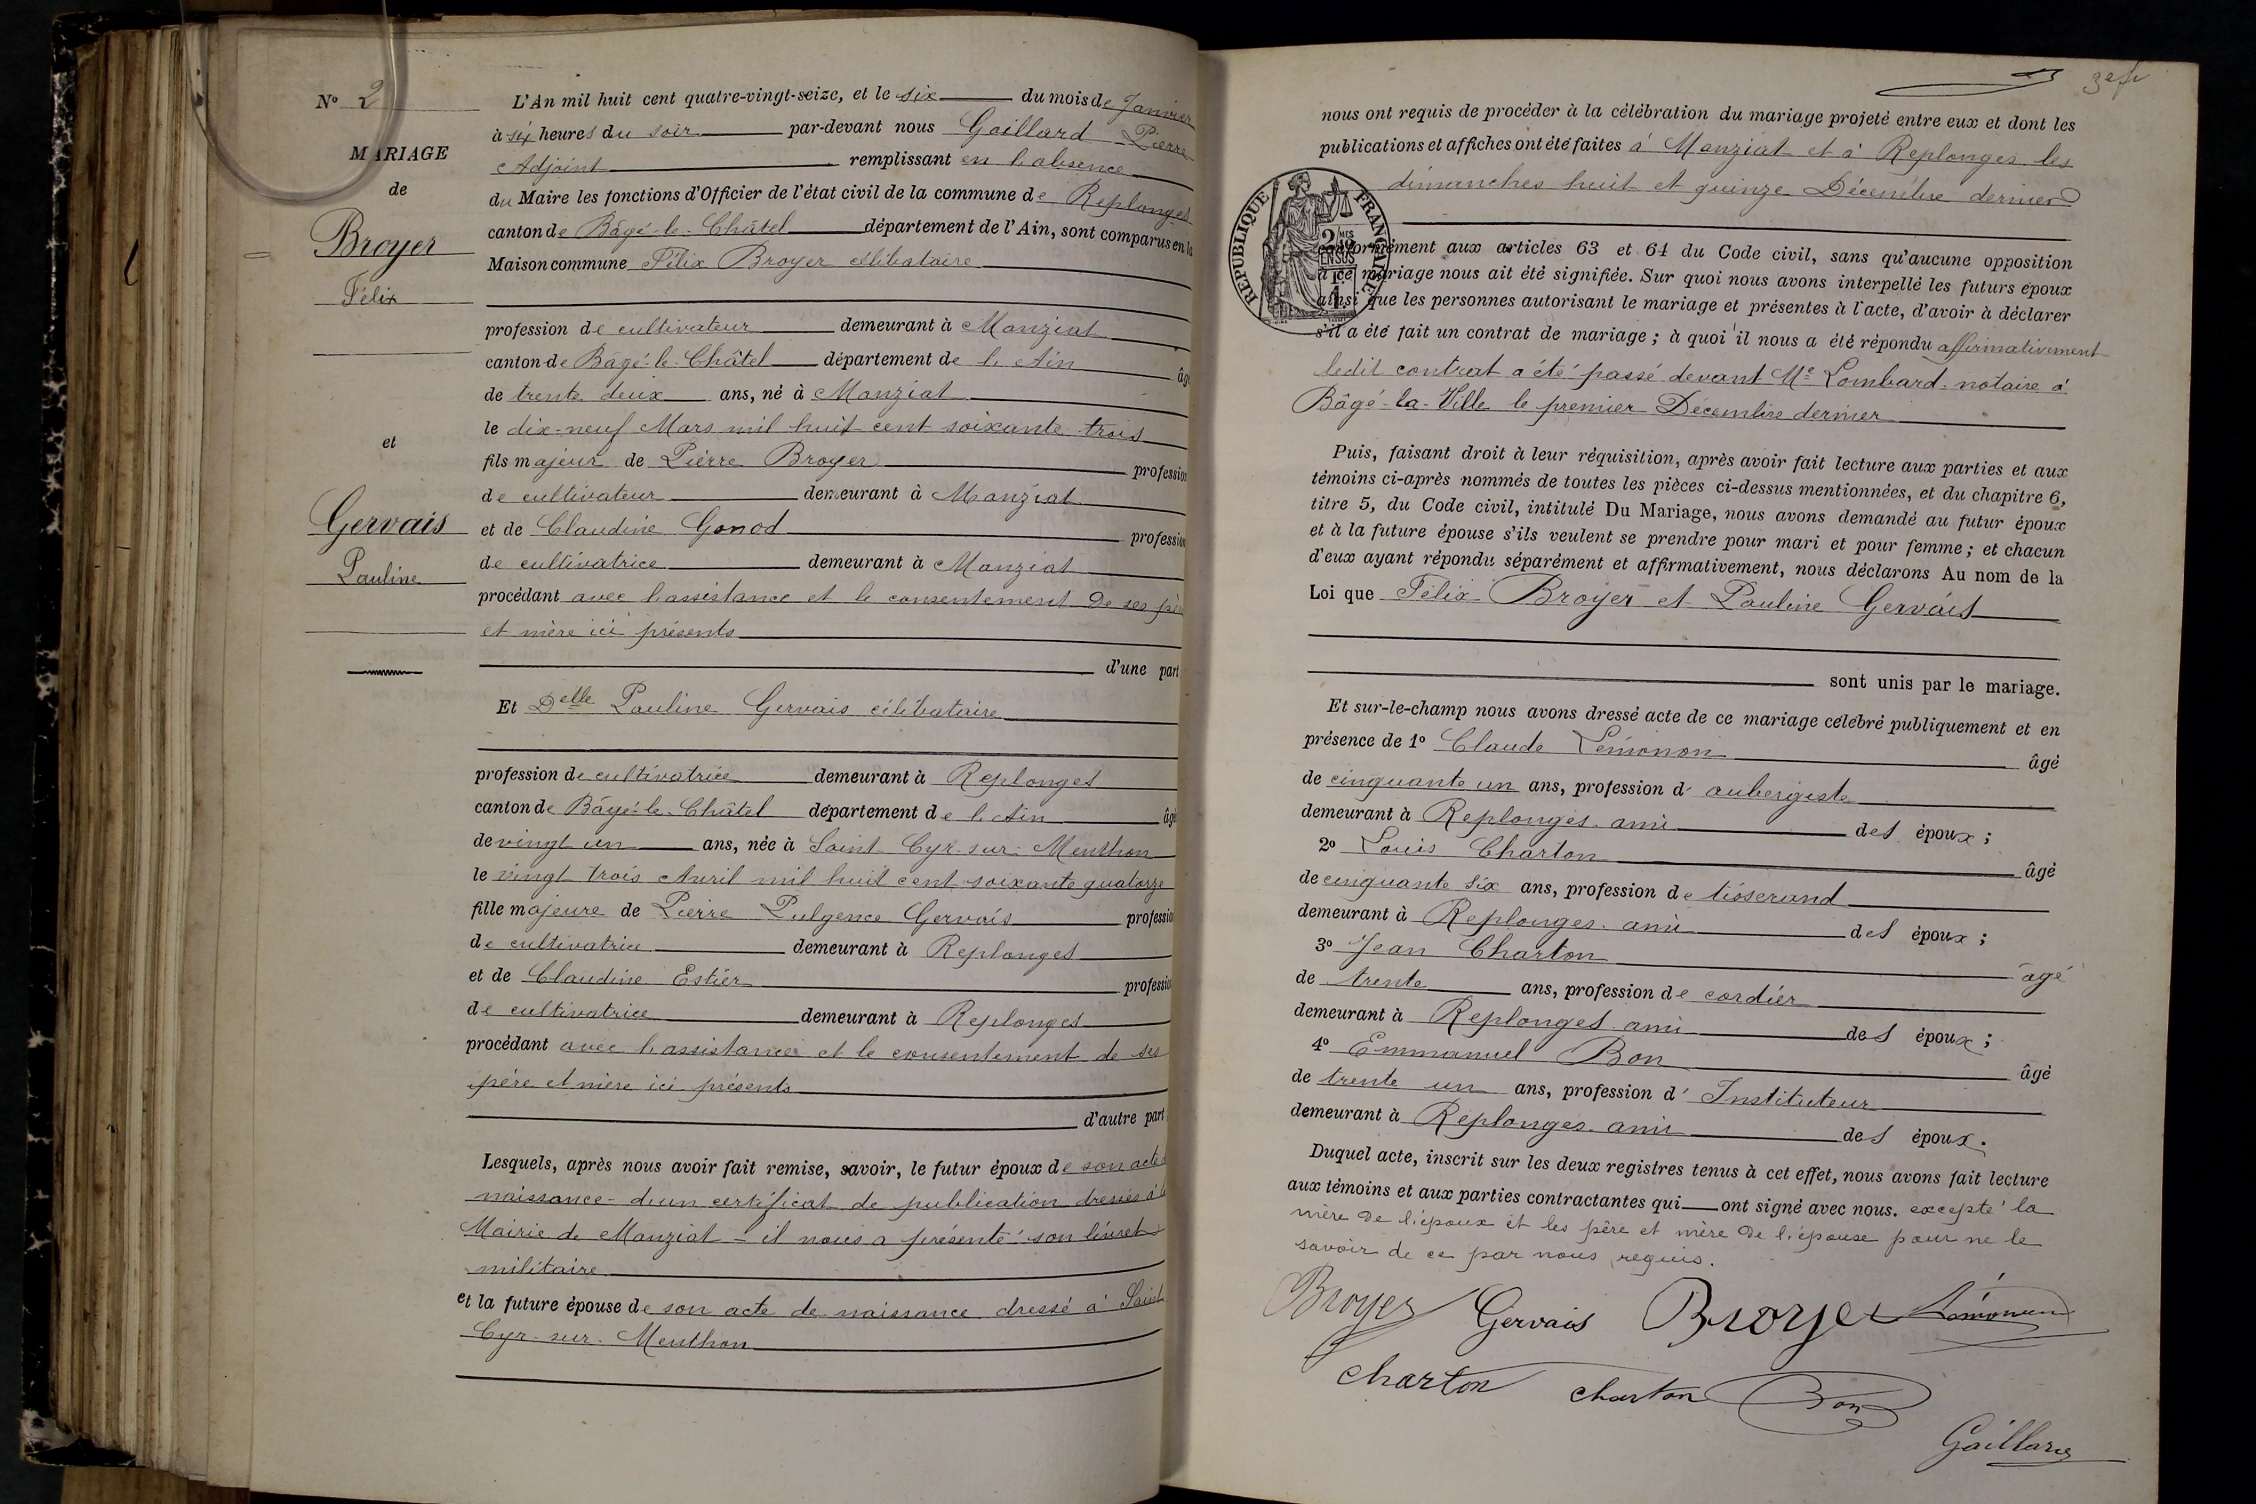 N° 2
MARIAGE
de
Broyer
Félix
et
Gervais
Pauline
L'An mil huit cent quatre-vingt-seize, et le six du mois de Janvier
à six heures du soir par-devant nous Gaillard Pierre
Adjoint remplissant en l'absence
du Maire les fonctions d'Officier de l'état civil de la commune de Replonges
canton de Bâgé-le-Châtel département de l'Ain, sont comparus en la
Maison commune Félix Broyer célibataire
profession de cultivateur demeurant à Manziat
canton de Bâgé-le-Châtel département de l'Ain âgé
de trente deux ans, né à Manziat
le dix-neuf Mars mil huit cent soixante trois
fils majeur de Pierre Broyer profession
de cultivateur demeurant à Manziat
et de Claudine Gonod profession
de cultivatrice demeurant à Manziat
procédant avec l'assistance et le consentement de ses père
et mère ici présents
d'une part
Et Delle Pauline Gervais célibataire
profession de cultivatrice demeurant à Replonges
canton de Bâgé-le-Châtel département de l'Ain âgé
de vingt un ans, née à Saint Cyr-sur-Menthon
le vingt trois Avril mil huit cent soixante quatorze
fille majeure de Pierre Pulgence Gervais profession
de cultivatrice demeurant à Replonges
et de Claudine Estier profession
de cultivatrice demeurant à Replonges
procédant avec l'assistance et le consentement de ses
père et mère ici présents
d'autre part
Lesquels, après nous avoir fait remise, savoir, le futur époux de son acte
naissance - d'un certificat de publication dressés à la
Mairie de Manziat - il nous a présenté son livret
militaire
et la future épouse de son acte de naissance dressé à Saint
Cyr-sur-Menthon
nous ont requis de procéder à la célébration du mariage projeté entre eux et dont les
publications et affiches ont été faites à Manziat et à Replonges les
dimanches huit et quinze Décembre dernier
RÉPUBLIQUE FRANÇAISE
conformément aux articles 63 et 64 du Code civil, sans qu'aucune opposition
à ce mariage nous ait été signifiée. Sur quoi nous avons interpellé les futurs époux
ainsi que les personnes autorisant le mariage et présentes à l'acte, d'avoir à déclarer
s'il a été fait un contrat de mariage ; à quoi il nous a été répondu affirmativement
ledit contrat a été passé devant Me Lombard notaire à
Bâgé-la-Ville le premier Décembre dernier
Puis, faisant droit à leur réquisition, après avoir fait lecture aux parties et aux
témoins ci-après nommés de toutes les pièces ci-dessus mentionnées, et du chapitre 6,
titre 5, du Code civil, intitulé Du Mariage, nous avons demandé au futur époux
et à la future épouse s'ils veulent se prendre pour mari et pour femme ; et chacun
d'eux ayant répondu séparément et affirmativement, nous déclarons Au nom de la
Loi que Félix Broyer et Pauline Gervais
sont unis par le mariage.
Et sur-le-champ nous avons dressé acte de ce mariage célébré publiquement et en
présence de 1° Claude Lémonon âgé
de cinquante un ans, profession d'aubergiste
demeurant à Replonges ami des époux ;
2° Louis Charton âgé
de cinquante six ans, profession de tisserand
demeurant à Replonges ami des époux ;
3° Jean Charton âgé
de trente ans, profession de cordier
demeurant à Replonges ami des époux ;
4° Emmanuel Bon âgé
de trente un ans, profession d'Instituteur
demeurant à Replonges ami des époux.
Duquel acte, inscrit sur les deux registres tenus à cet effet, nous avons fait lecture
aux témoins et aux parties contractantes qui ont signé avec nous. excepté la
mère de l'époux et les père et mère de l'épouse pour ne le
savoir de ce par nous requis.
Broyer Gervais Broyer Lémonon
Charton Charton Bon
Gaillard